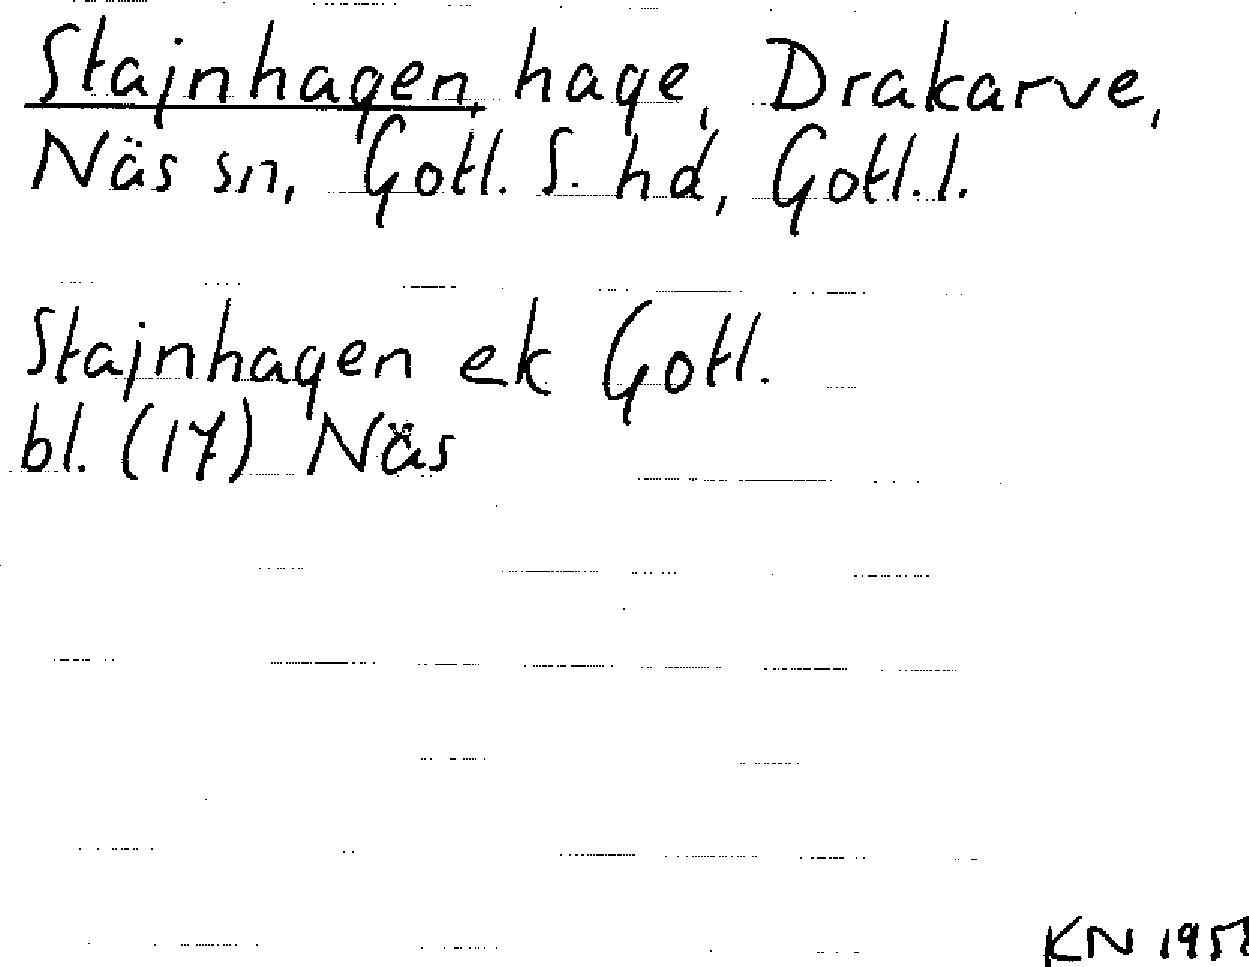 Stajnhagen, hage, Drakarve,
Näs sn, Gotl. S. hd, Gotl.l.
Stajnhagen ek Gotl.
bl. (17) Näs
KN 1951